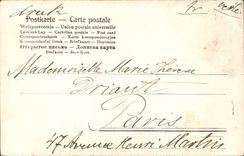 Postkarte — Carte postale
Weltpostverein - Union postale universelle
Levelező-Lap — Cartolina postale — Post card
Correspondenzkarte - Karta korespondencyjna
Korespondenční lístek - Briefkaart - Dopisnica
Открытое письмо — Дописна карта
Brefkort — Brev-Kort
Mademoiselle Marie Thérèse
Driant
Paris
47 Avenue Henri Martin